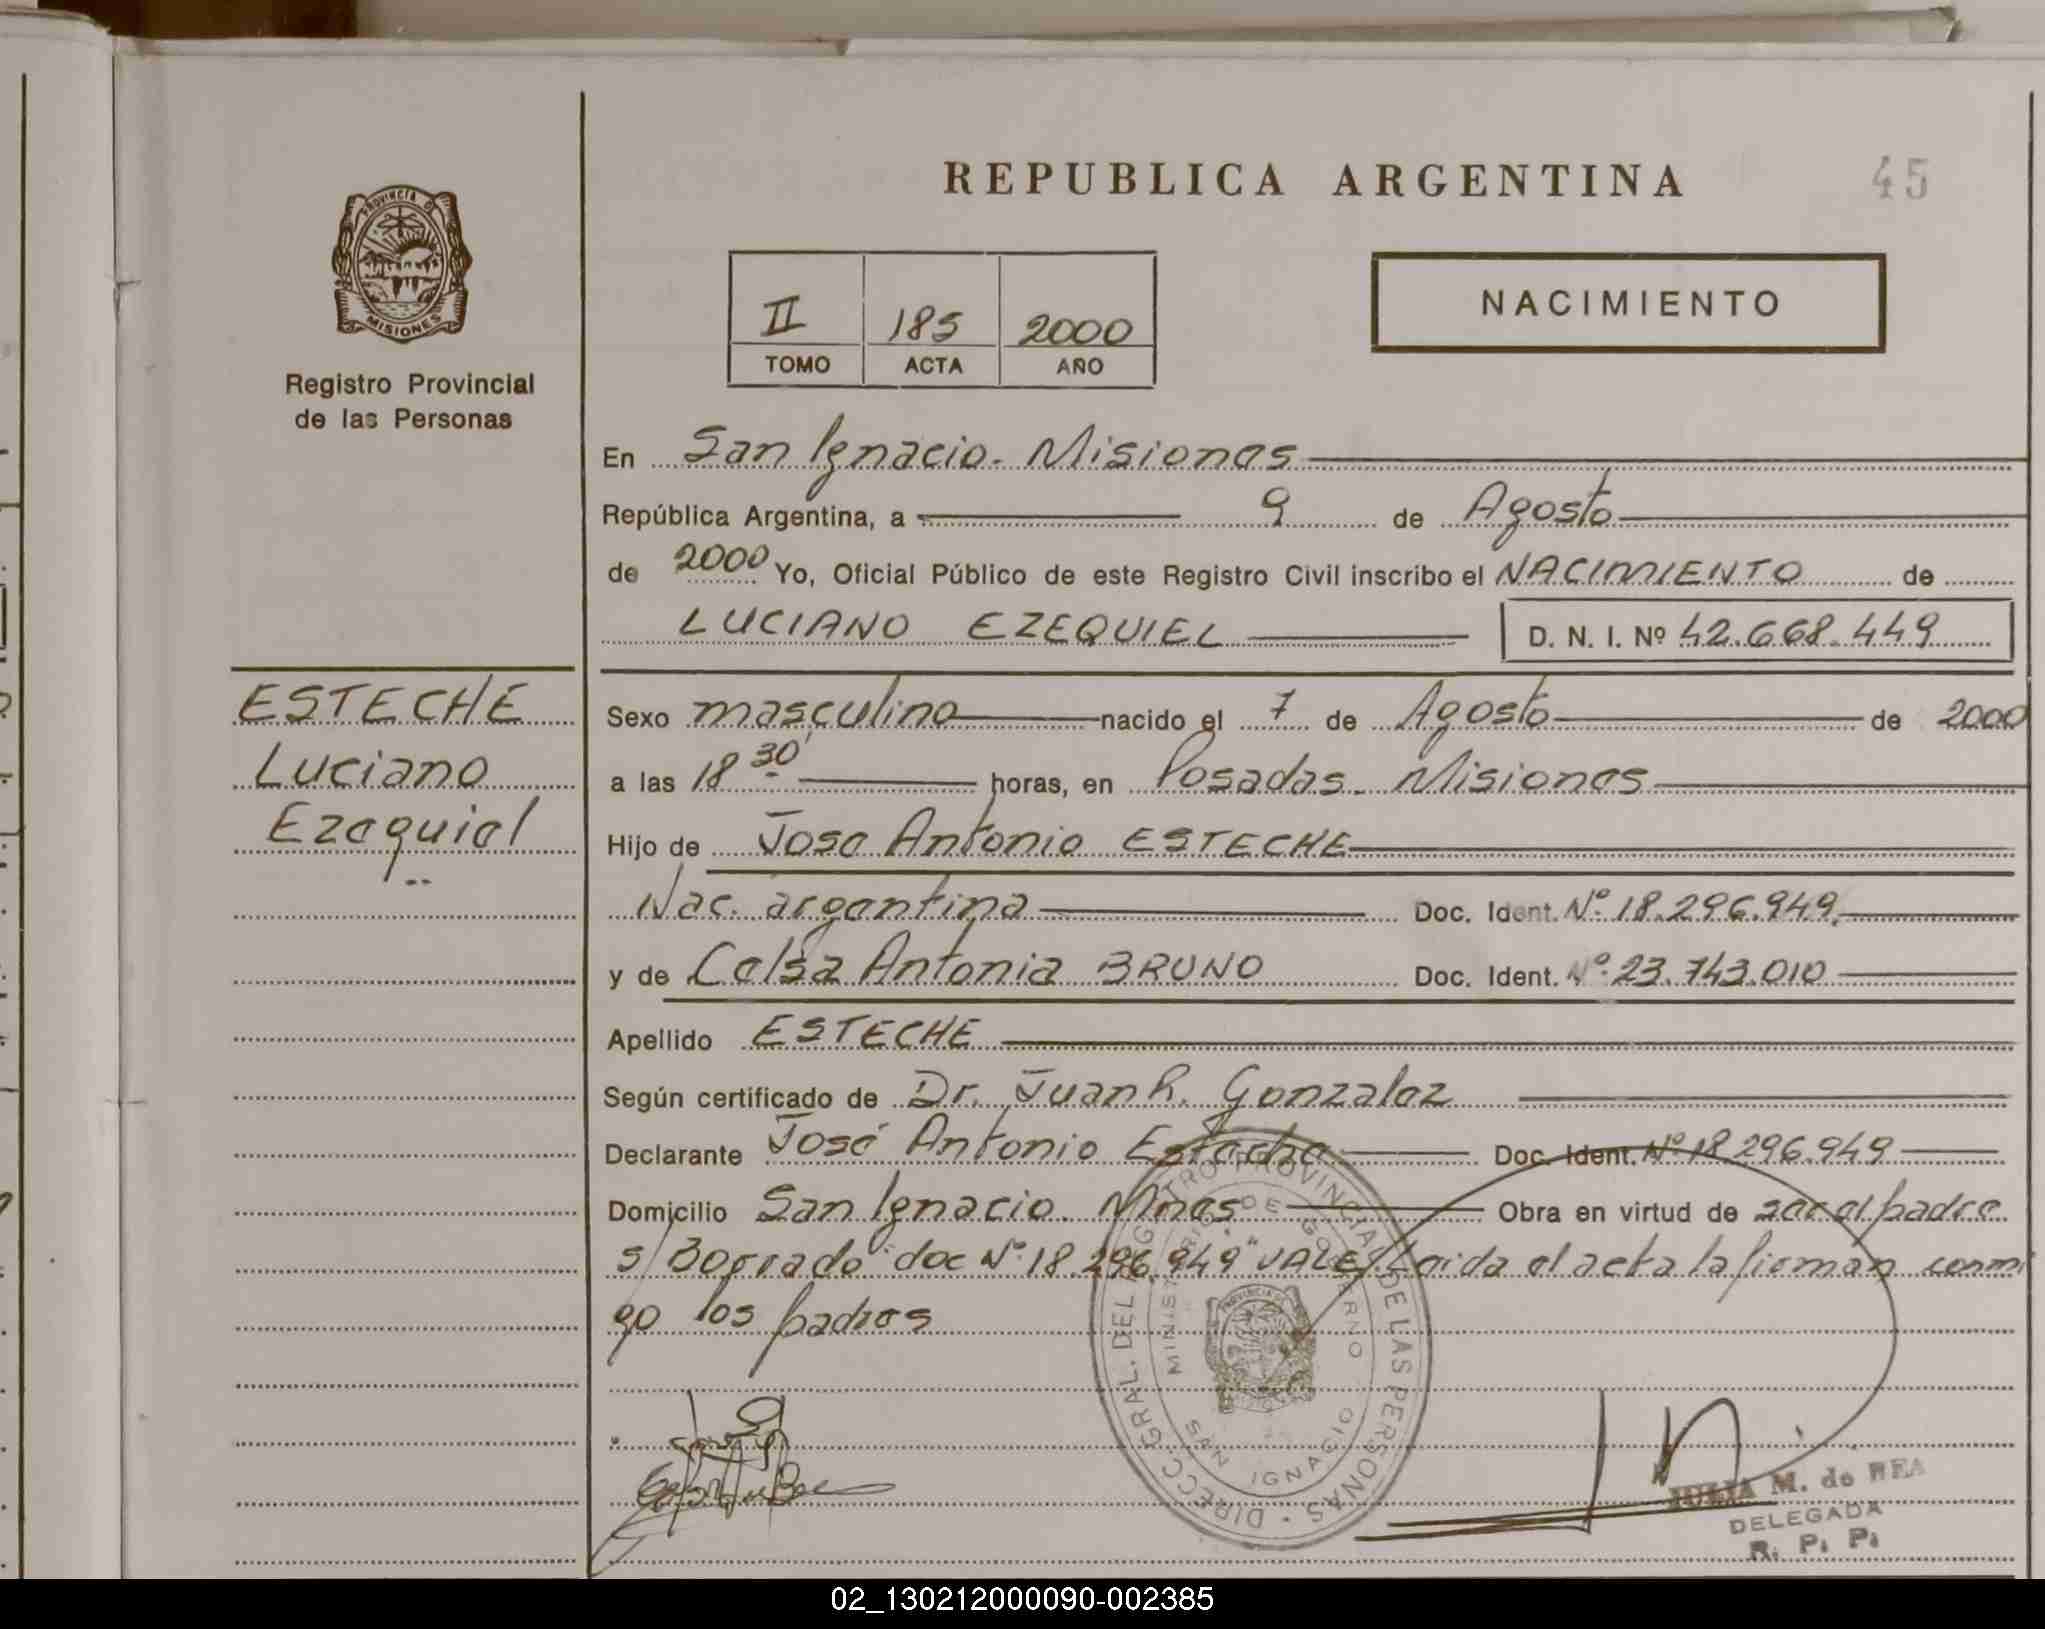 REPUBLICA ARGENTINA
45
PROVINCIA DE
MISIONES
Registro Provincial
de las Personas
II 185 2000
TOMO ACTA AÑO
NACIMIENTO
En San Ignacio. Misiones
República Argentina, a 9 de Agosto
de 2000 Yo, Oficial Público de este Registro Civil inscribo el NACIMIENTO de
LUCIANO EZEQUIEL D. N. I. Nº 42.668.449
ESTECHE
Luciano
Ezequiel
Sexo masculino nacido el 7 de Agosto de 2000
a las 18 30 horas, en Posadas. Misiones
Hijo de Jose Antonio ESTECHE
Nac. argentina Doc. Ident. Nº 18.296.949.
y de Celsa Antonia BRUNO Doc. Ident. Nº 23.743.010
Apellido ESTECHE
Según certificado de Dr. Juan R. Gonzalez
Declarante José Antonio Esteche Doc. Ident. Nº 18.296.949
Domicilio San Ignacio. Mnes Obra en virtud de ser el padre
s/ Borrado "doc Nº 18.296.949" VALE/ Leida el acta la firman conmi
go los padres
DIRECC. GRAL. DEL REGISTRO PROVINCIAL DE LAS PERSONAS
MINISTERIO DE GOBIERNO
SAN IGNACIO
JULIA M. de REA
DELEGADA
R. P. P.
02_130212000090-002385